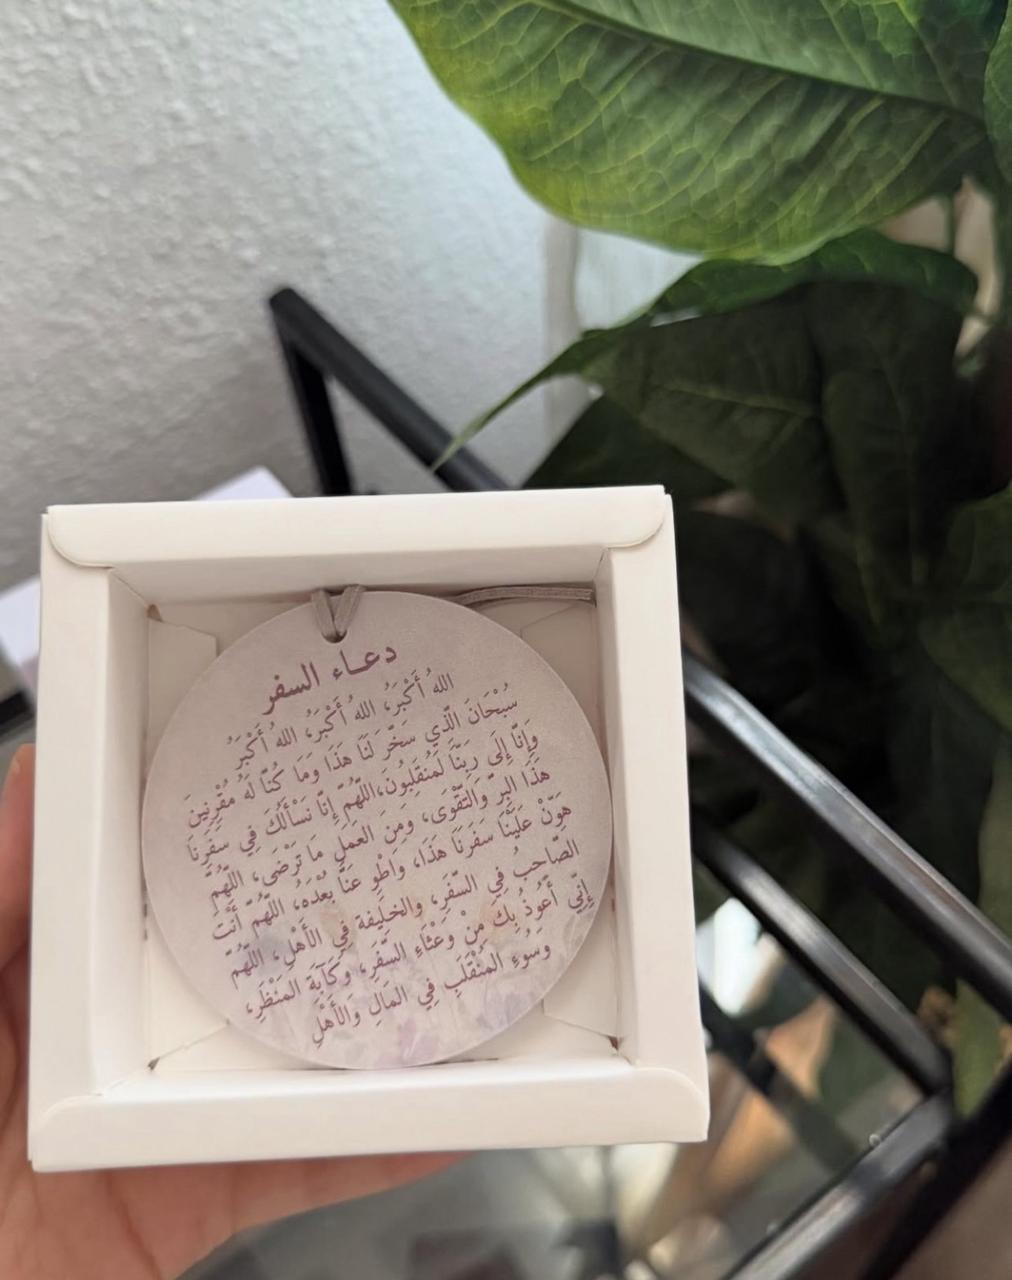 دعـاء السفر
اللهُ أَكْبَرُ، اللهُ أَكْبَرُ، اللهُ أَكْبَرُ
سُبْحَانَ الَّذِي سَخَّرَ لَنَا هَذَا وَمَا كُنَّا لَهُ مُقْرِنِينَ
وَإِنَّا إِلَى رَبِّنَا لَمُنْقَلِبُونَ،اللَّهُمَّ إِنَّا نَسْأَلُكَ فِي سَفَرِنَا
هَذَا البِرَّ وَالتَّقْوَى، وَمِنَ العَمَلِ مَا تَرْضَى، اللَّهُمَّ
هَوِّنْ عَلَيْنَا سَفَرَنَا هَذَا، وَاطْوِ عَنَّا بُعْدَهُ، اللَّهُمَّ أَنْتَ
الصَّاحِبُ فِي السَّفَرِ، والخَلِيفَة فِي الأَهْلِ، اللَّهُمَّ
إِنِّي أَعُوذُ بِكَ مِنْ وَعْثَاءِ السَّفَرِ، وَكَآبَةِ المَنْظَرِ،
وَسُوءِ المُنْقَلَبِ فِي المَالِ وَالأَهْلِ